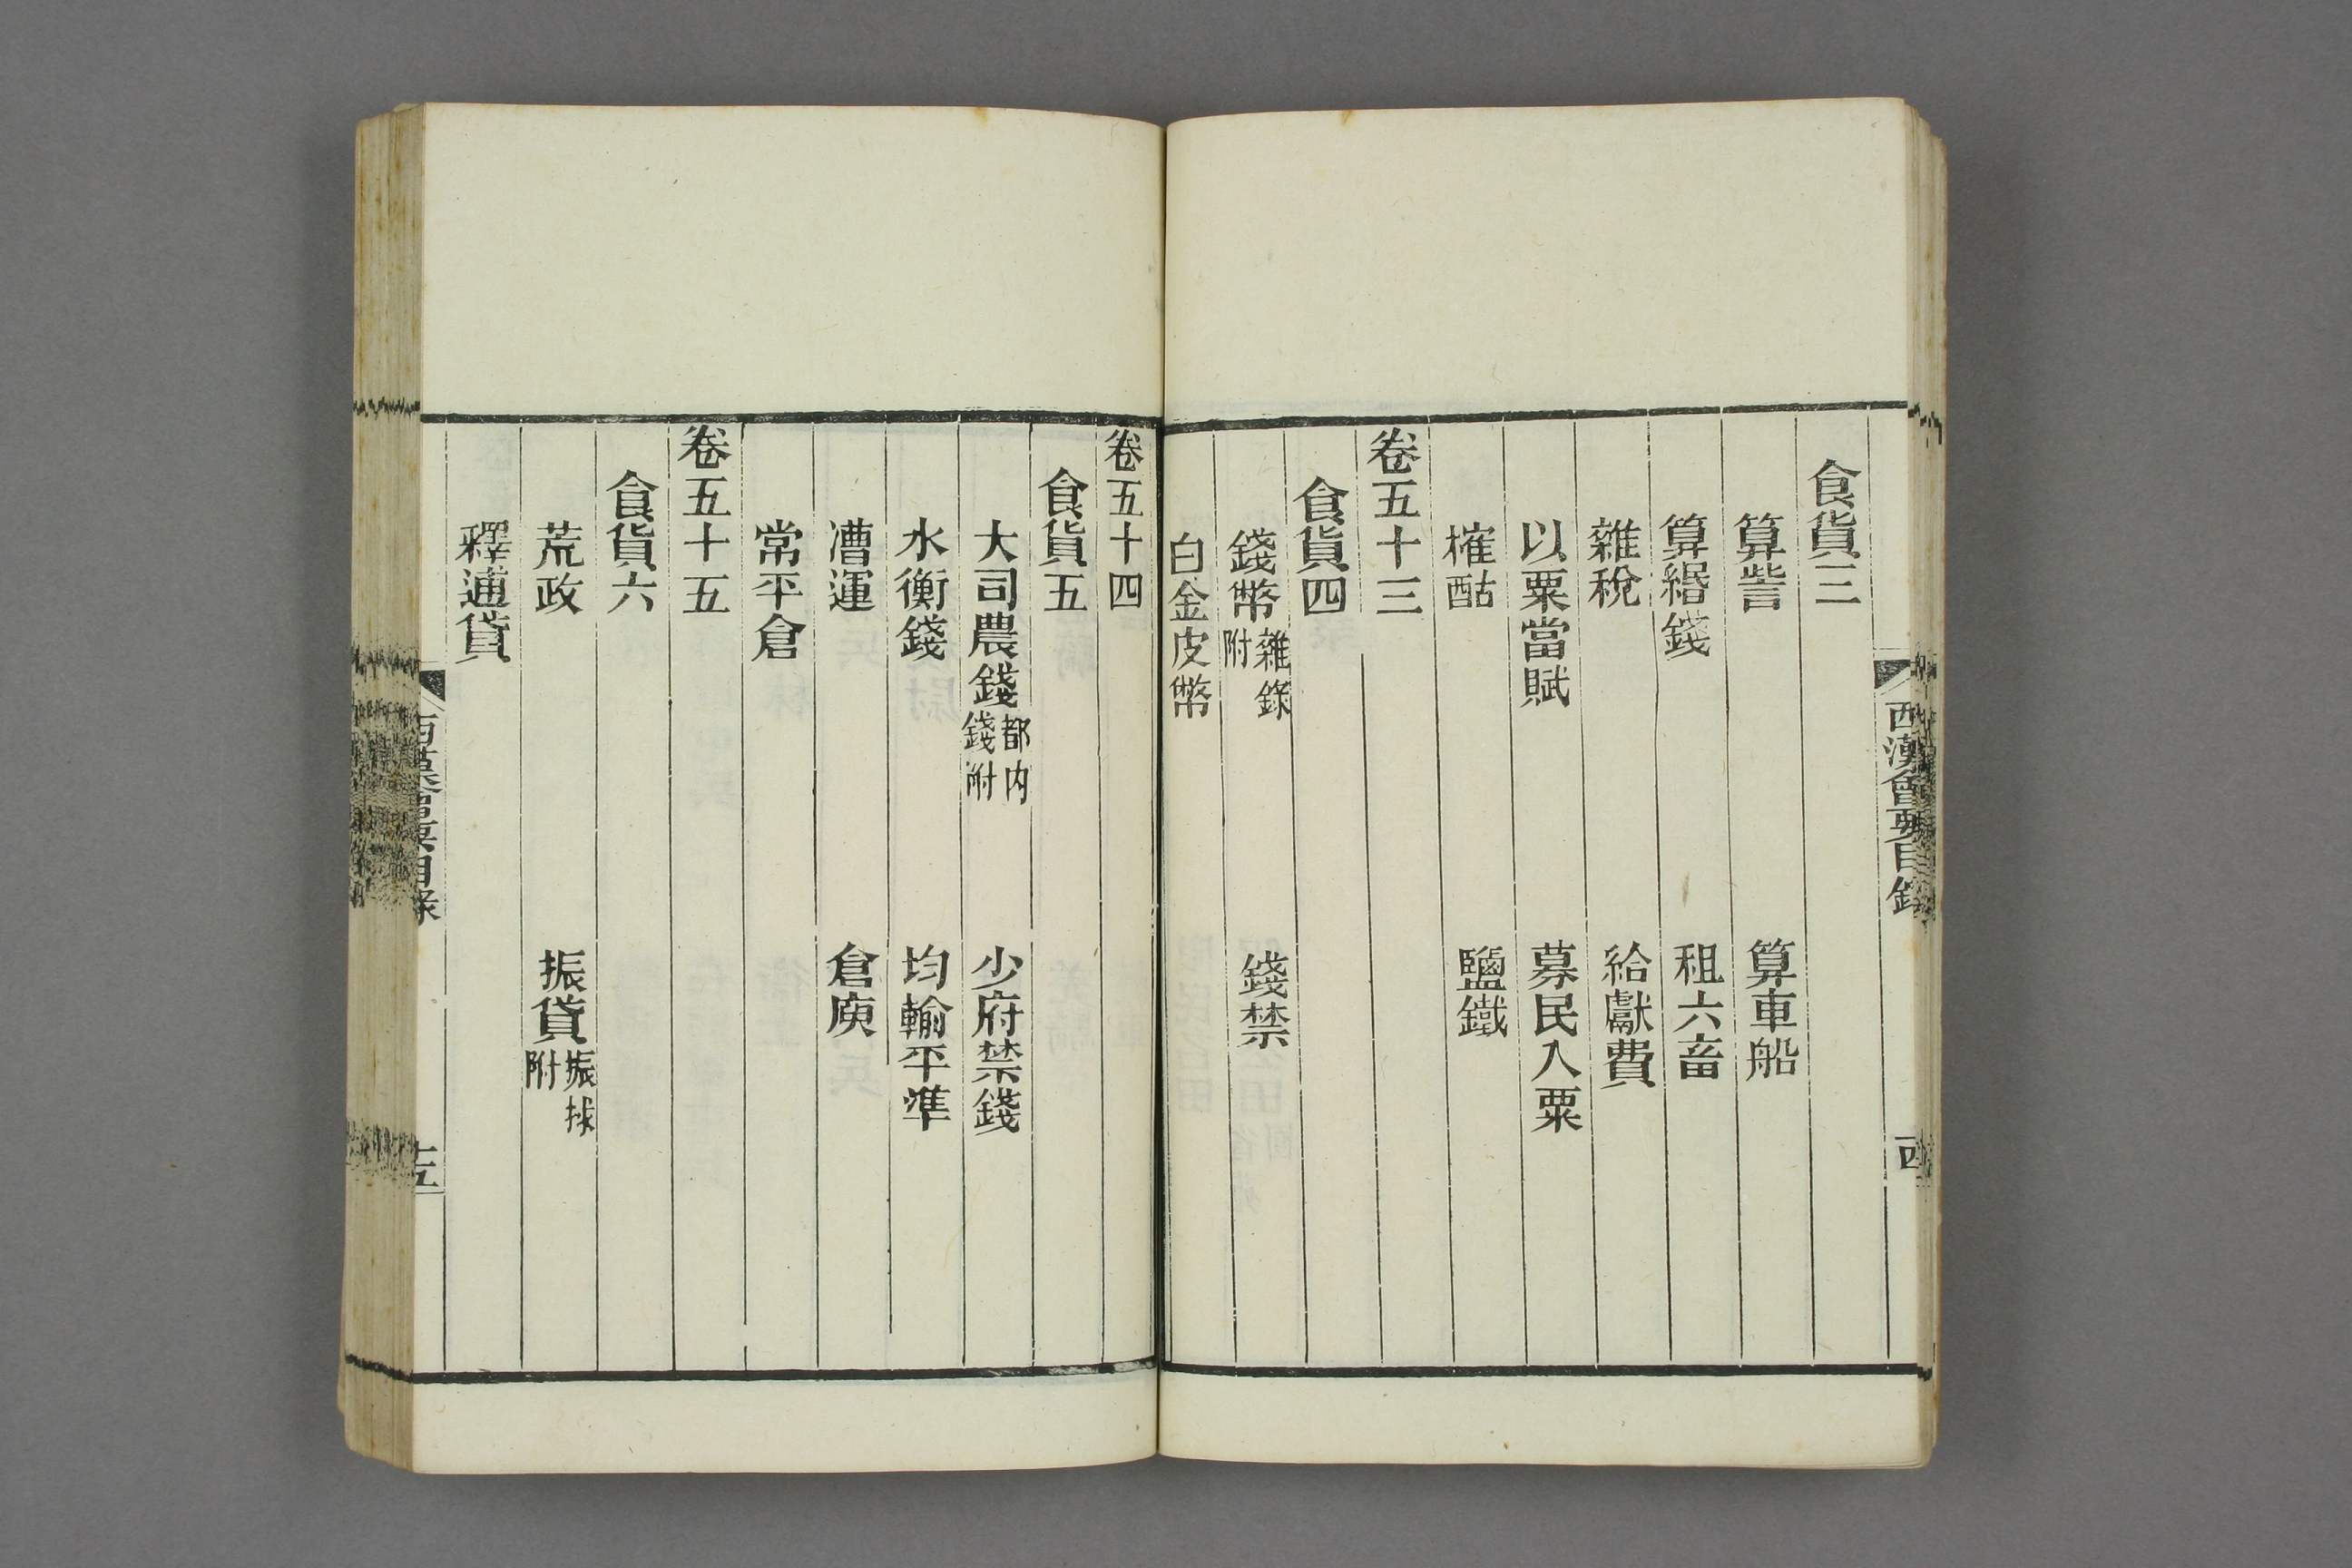 食貨三
算訾 算車船
算緡錢 租六畜
雜稅 給獻費
以粟當賦 募民入粟
榷酤 鹽鐵
卷五十三
食貨四
錢幣雜錄附 錢禁
白金皮幣
西漢會要目錄
卷五十四
食貨五
大司農錢都內錢附 少府禁錢
水衡錢 均輸平準
漕運 倉庾
常平倉
卷五十五
食貨六
荒政 振貸振捄附
釋逋貸
西漢會要目錄
十五